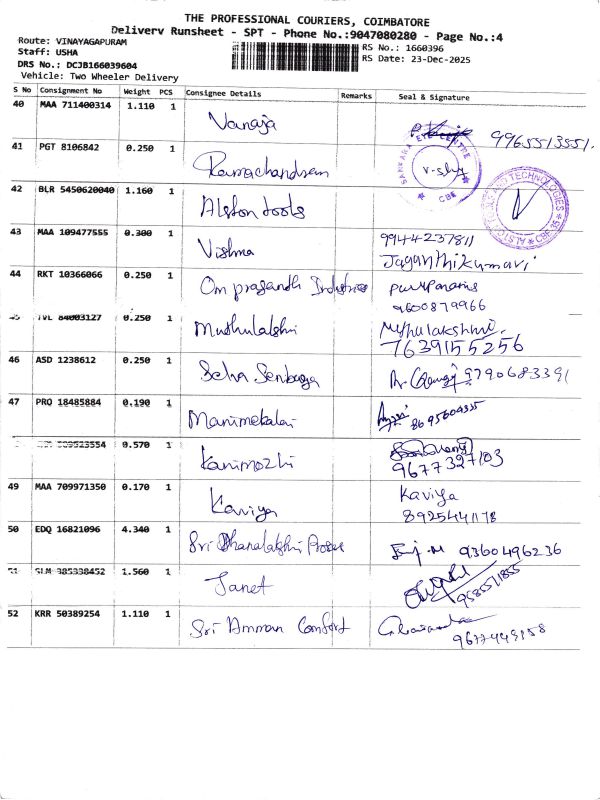 THE PROFESSIONAL COURIERS, COIMBATORE
Delivery Runsheet - SPT - Phone No.:9047080280 - Page No.:4
Route: VINAYAGAPURAM
Staff: USHA
DRS No.: DCJB166039604
Vehicle: Two Wheeler Delivery
RS No.: 1660396
RS Date: 23-Dec-2025
S No Consignment No Weight PCS Consignee Details Remarks Seal & Signature
40 MAA 711400314 1.110 1 Vanaja 9965513551.
41 PGT 8106842 0.250 1 Ramachandran
SANKARA EYE CENTRE
CBE
42 BLR 5450620040 1.160 1 Alston tools
AND TECHNOLOGIES
CBE-35
43 MAA 109477555 0.300 1 Vishma 9944237811
Jaganthikumari
44 RKT 10366066 0.250 1 Om prasandh Industries
9600879966
45 TVL 84003127 0.250 1 Muthulakshi Muthulakshmi
7639155256
46 ASD 1238612 0.250 1 9790683391
47 PRO 18485884 0.190 1 Manimekalai 8695604335
509523554 0.570 1 Kanimozhi
9677327103
49 MAA 709971350 0.170 1 Kaviya Kaviya
8925441178
50 EDQ 16821096 4.340 1 Sri Dhanalakshi 9360496236
51 SLM 385338452 1.560 1 Janet
9585571855
52 KRR 50389254 1.110 1 Sri Amman Comfort
9677449158